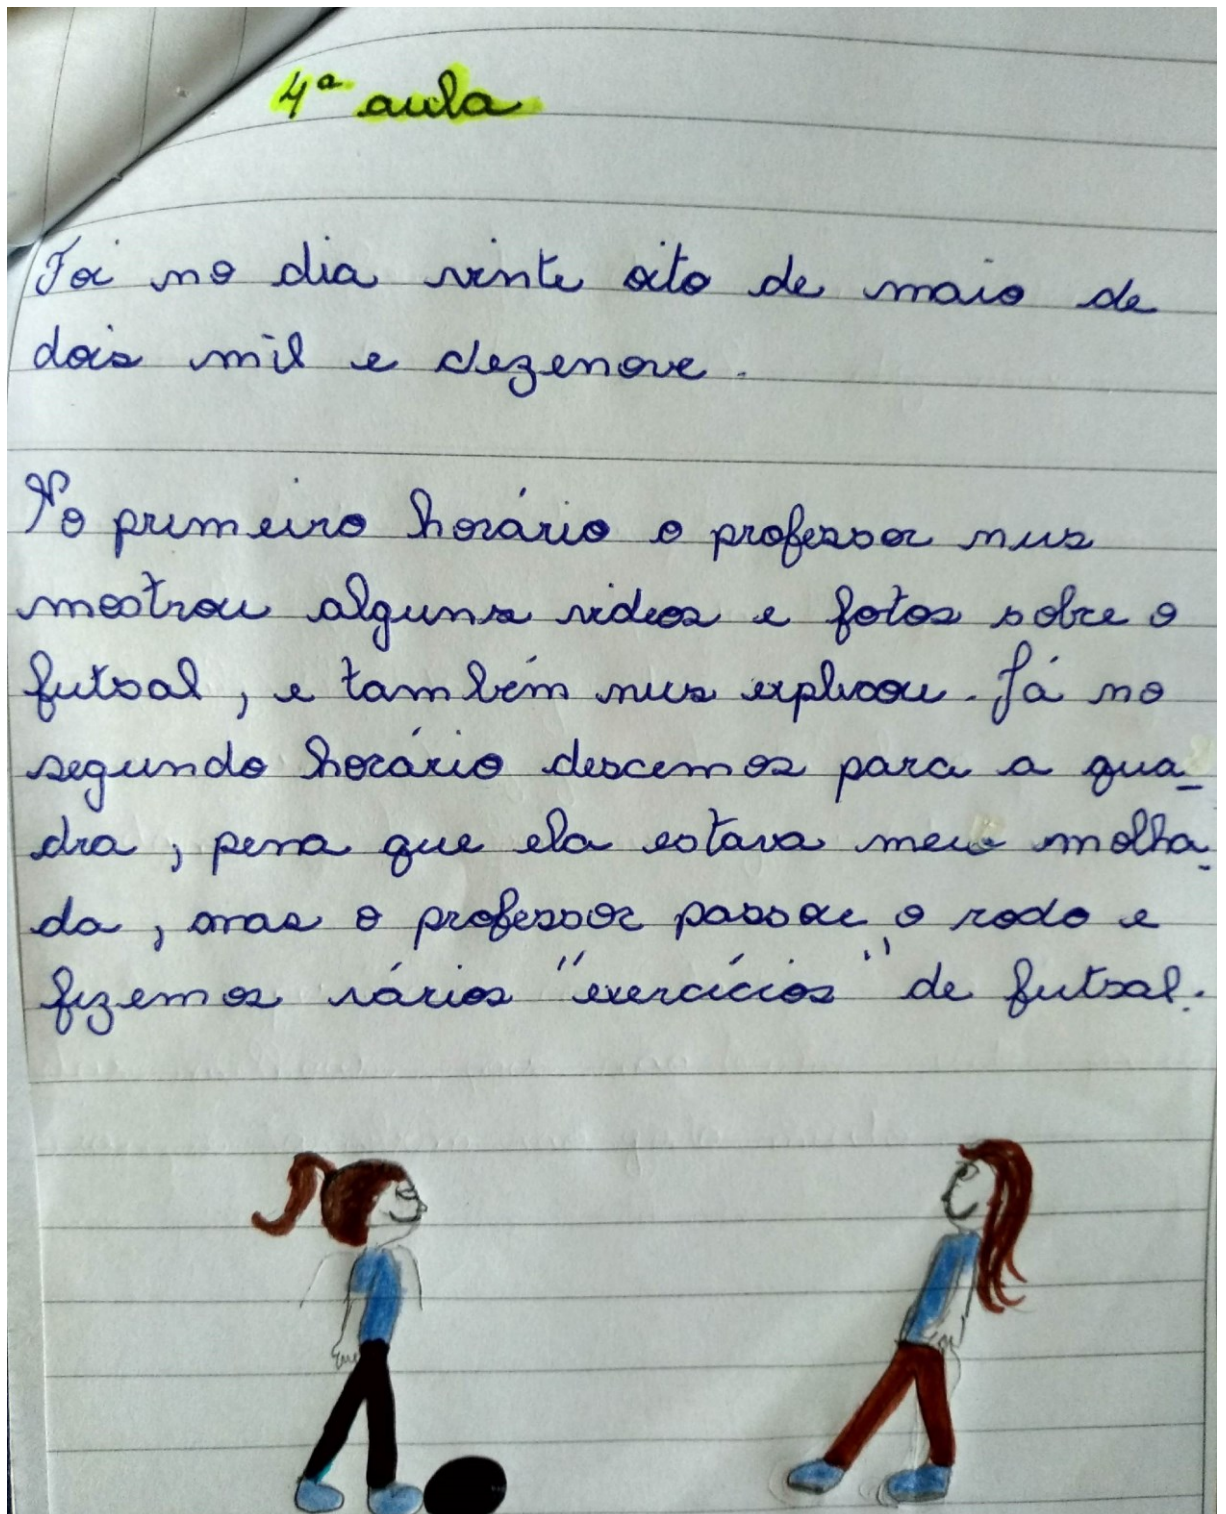 4ª aula
Foi no dia vinte oito de maio de
dois mil e dezenove.
No primeiro horário o professor nus
mostrou alguns videos e fotos sobre o
futsal, e também nus explicou. Já no
segundo horário descemos para a qua_
dra, pena que ela estava meio molha_
da, mas o professor passou o rodo e
fizemos vários "exercícios" de futsal.